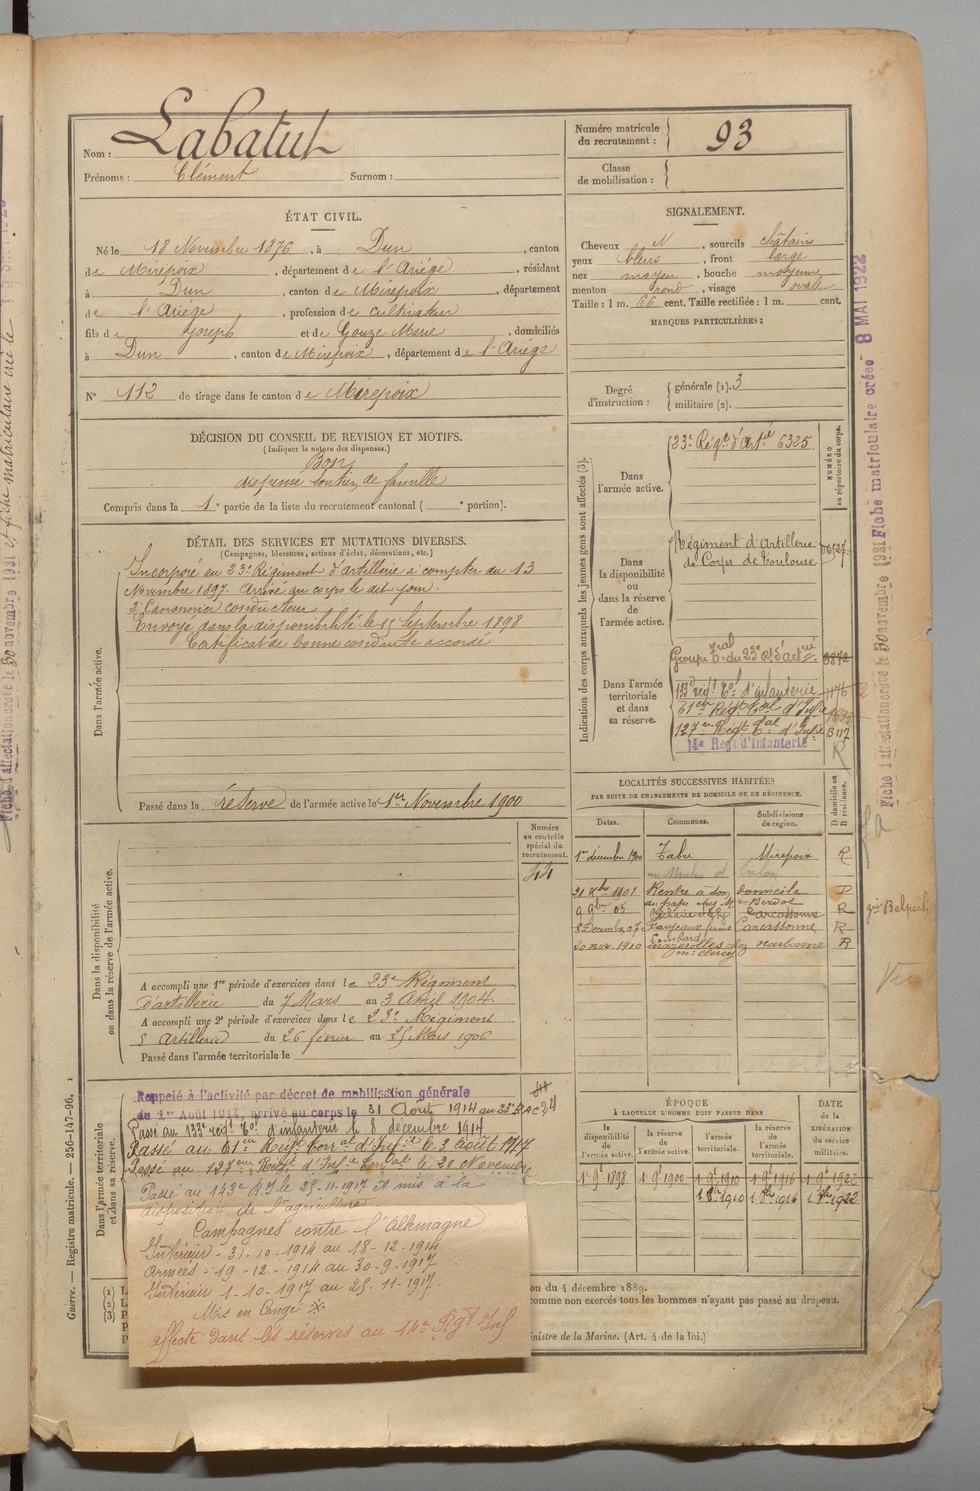 Nom : Labatut
Prénoms : Clément Surnom :
Numéro matricule du recrutement : 93
Classe de mobilisation :
ÉTAT CIVIL.
Né le 18 Novembre 1876, à Dun, canton
de Mirepoix, département de l'Ariége, résidant
à Dun, canton de Mirepoix, département
de l'Ariége, profession de cultivateur
fils de Joseph et de Gouze Marie, domiciliés
à Dun, canton de Mirepoix, département de l'Ariége
N° 112 de tirage dans le canton de Mirepoix
SIGNALEMENT.
Cheveux N, sourcils châtains
yeux bleus, front large
nez moyen, bouche moyenne
menton rond, visage ovale
Taille : 1 m. 66 cent. Taille rectifiée : 1 m. cent.
MARQUES PARTICULIÈRES :
Degré d'instruction : générale (1). 3
militaire (2).
DÉCISION DU CONSEIL DE REVISION ET MOTIFS.
(Indiquer la nature des dispenses.)
Bon
dispense soutien de famille
Compris dans la 1e partie de la liste du recrutement cantonal ( e portion).
DÉTAIL DES SERVICES ET MUTATIONS DIVERSES.
(Campagnes, blessures, actions d'éclat, décorations, etc.)
Dans l'armée active.
Incorporé au 23e Régiment d'artillerie à compter du 13
Novembre 1897. Arrivé au corps le dit jour.
2e Canonnier conducteur
Envoyé dans la disponibilité le 15 Septembre 1898
Certificat de bonne conduite accordé
Passé dans la réserve de l'armée active le 1er Novembre 1900
Numéro au contrôle spécial du recrutement.
44
Dans la disponibilité ou dans la réserve de l'armée active.
A accompli une 1re période d'exercices dans le 23e Régiment
d'artillerie du 7 Mars au 3 Avril 1904.
A accompli une 2e période d'exercices dans le 23e Régiment
d'Artillerie du 26 février au 25 Mars 1906
Passé dans l'armée territoriale le
Dans l'armée territoriale et dans sa réserve.
Rappelé à l'activité par décret de mobilisation générale
du 1er Août 1914, arrivé au corps le 31 Août 1914 au 23e RAC
Passé au 133e régt Tal d'infanterie le 8 décembre 1914
Passé au 61en Regt Terrial d'Infie le 3 Août 1917
Passé au 127em Regt d'Infie Terriale le 20 Novembre
Passé au 143e R.I le 25-11-1917 et mis à la
disposition de l'agriculture
Campagnes contre l'Allemagne
Intérieur - 31-10-1914 au 18-12-1914
Armées - 19-12-1914 au 30-9-1917
Intérieur 1-10-1917 au 25-11-1917.
Mis en Congé
affecté dans les réserves au 14e Rgt Inf
Indication des corps auxquels les jeunes gens sont affectés (3).
NUMÉRO au répertoire du corps.
Dans l'armée active.
23e Régt d'Artie 6325
Dans la disponibilité ou dans la réserve de l'armée active.
Régiment d'Artillerie
de Corps de Toulouse
Dans l'armée territoriale et dans sa réserve.
Groupe Tal du 23e Rt d'Artrie 3872
133e regt Tal d'infanterie 1176
61em Regt Tal d'Infie
127em Regt Tal d'Infie 13117
14e Régt d'Infanterie
LOCALITÉS SUCCESSIVES HABITÉES
PAR SUITE DE CHANGEMENTS DE DOMICILE OU DE RÉSIDENCE.
Dates. Communes. Subdivisions de région. D domicile ou R résidence.
1er décembre 1900 Tabre Mirepoix R
21 Xbre 1901 Rentre à son domicile D
9 9bre 05 Carcassonne R
8 Décembre 07 Fanjeaux ferme Lombard Carcassonne R
20 nov. 1910 narbonne R
ÉPOQUE
À LAQUELLE L'HOMME DOIT PASSER DANS
DATE de la LIBÉRATION du service militaire.
la disponibilité de l'armée active. la réserve de l'armée active. l'armée territoriale. la réserve de l'armée territoriale.
1er 9e 1898 1 9e 1900 1 9e 1910 1 9e 1916 1 9e 1922
1 8e 1910 1 8e 1916 1 8e 1922
on du 4 décembre 1889.
comme non exercés tous les hommes n'ayant pas passé au drapeau.
inistre de la Marine. (Art. 4 de la loi.)
Guerre. — Registre matricule. — 256-147-96.
Fiche matriculaire créée 8 MAI 1922
Fiche d'affectation créée le 30 novembre 1921
Belpech